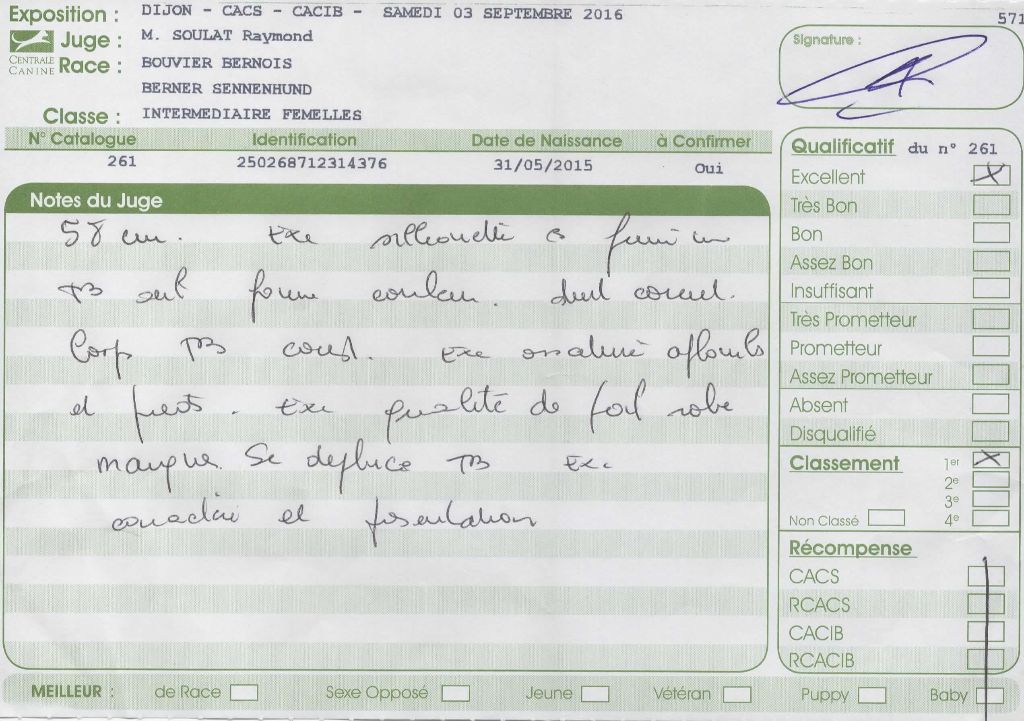 Exposition : DIJON - CACS - CACIB - SAMEDI 03 SEPTEMBRE 2016
571
Juge : M. SOULAT Raymond
CENTRALE CANINE
Race : BOUVIER BERNOIS
BERNER SENNENHUND
Classe : INTERMEDIAIRE FEMELLES
Signature :
N° Catalogue Identification Date de Naissance à Confirmer
261 250268712314376 31/05/2015 Oui
Notes du Juge
58 cm. Exc silhouette
TB oeil forme couleur. dent correct.
Corp TB const. Exc ossature aplombs
et pieds. Exc qualité de poil robe
marques. Se deplace TB Exc
caractère et présentation
Qualificatif du n° 261
Excellent X
Très Bon
Bon
Assez Bon
Insuffisant
Très Prometteur
Prometteur
Assez Prometteur
Absent
Disqualifié
Classement 1er X
2e
3e
Non Classé 4e
Récompense
CACS
RCACS
CACIB
RCACIB
MEILLEUR : de Race Sexe Opposé Jeune Vétéran Puppy Baby